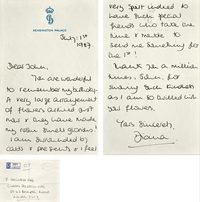 KENSINGTON PALACE
July 1st
1987.
Dear John,
You are wonderful
to remember my birthday.
A very large arrangement
of flowers arrived just
now & they have made
my room
I am surrounded by
cards & presents & feel
very spoilt indeed to
have such special
friends who take the
time & trouble to
send me something for
the 1st!
Thank you a million
times, John, for
such kindness
as I am so thrilled with
your flowers.
Yours sincerely,
Diana.